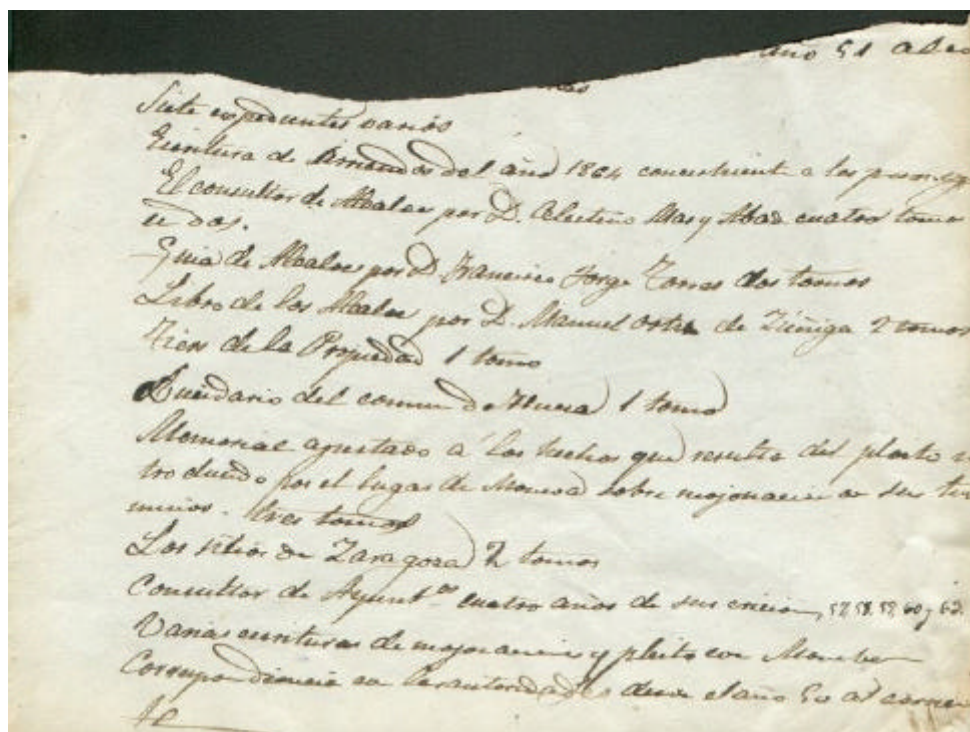 año 51 a
Siete expedientes varios
Escritura de del año 1864 concerniente a los
El consultor de Alcaldes por D. Celestino Mas y Abad cuatro tomos
en dos.
Guia de Alcaldes por D. Francisco Jorge Torres dos tomos
Libro de los Alcaldes por D. Manuel Ortiz de Zúñiga 2 tomos
de la Propiedad 1 tomo
Lucidario del comun de Huesa 1 tomo
Memorial ajustado á los hechos que resulta del pleito in
troducido por el lugar de Moneva sobre mojonacion de sus ter
minos. tres tomos
Los sitios de Zaragoza 2 tomos
Consultor de Ayunt.os cuatro años de su, 57. 58. 59. 60 y 62.
Varias escrituras de mojonacion y pleito con
Correspondencia con las autoridades desde el año 50 al corrien
te